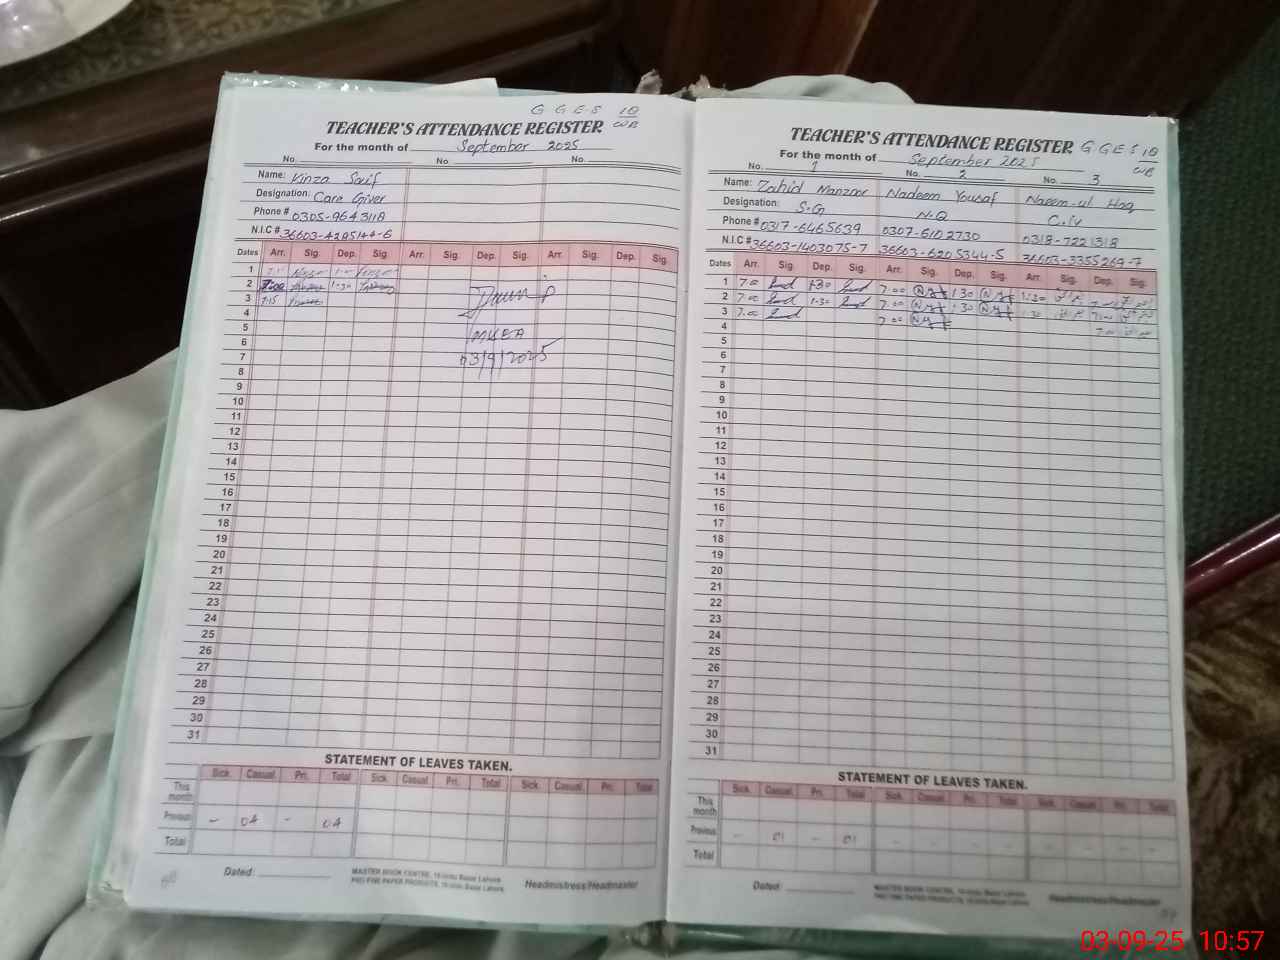 G G E S 18
WB
TEACHER'S ATTENDANCE REGISTER
For the month of September 2025
No. No. No.
Name: Kinza Saif
Designation: Care Giver
Phone # 0305-9643118
N.I.C #
Dates Arr. Sig. Dep. Sig. Arr. Sig. Dep. Sig. Arr. Sig. Dep. Sig.
1
2 7:00 1:30
3 7:15
4
5
6
7
8
9
10
11
12
13
14
15
16
17
18
19
20
21
22
23
24
25
26
27
28
29
30
31
03/9/2025
STATEMENT OF LEAVES TAKEN.
Sick. Casual. Pri. Total Sick. Casual. Pri. Total Sick. Casual. Pri. Total
This month
Previous - 04 - 04
Total
Dated: Headmistress/Headmaster
MASTER BOOK CENTRE, 16-Urdu Bazar Lahore.
TEACHER'S ATTENDANCE REGISTER G G E S 18
WB
For the month of September 2025
No. 1 No. 2 No. 3
Name: Zahid Manzoor Nadeem Yousaf Naeem-ul Haq
Designation: S.G N.Q C.iv
Phone # 0317-6465639 0307-6102730 0318-7221318
N.I.C # 36603-1403075-7 36603-6205344-5 36603-3355269-7
Dates Arr. Sig. Dep. Sig. Arr. Sig. Dep. Sig. Arr. Sig. Dep. Sig.
1 7:00 1:30 7:00 N.Y 1:30 N.Y 1:30
2 7:00 1:30 7:00 N.Y 1:30 N.Y 1:30 7:00
3 7:00 7:00 N.Y 7:00
4
5
6
7
8
9
10
11
12
13
14
15
16
17
18
19
20
21
22
23
24
25
26
27
28
29
30
31
STATEMENT OF LEAVES TAKEN.
Sick. Casual. Pri. Total Sick. Casual. Pri. Total Sick. Casual. Pri. Total
This month
Previous - 01 - 01 - - - - - - - -
Total
Dated: Headmistress/Headmaster
MASTER BOOK CENTRE, 16-Urdu Bazar Lahore.
03-09-25 10:57